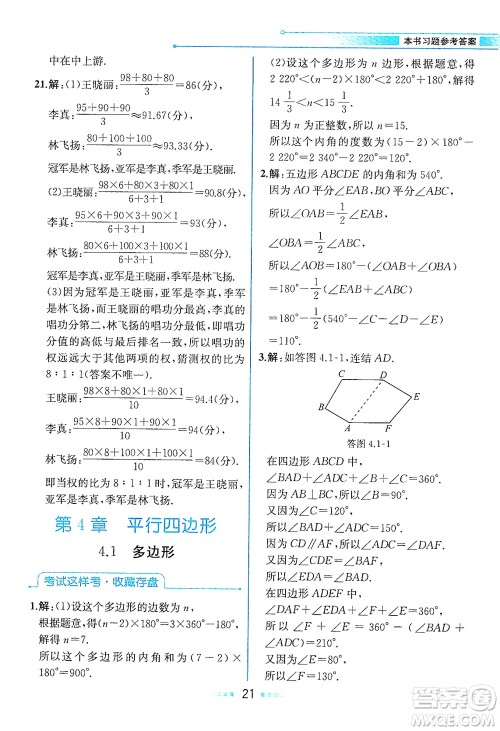 本书习题参考答案
中在中上.
21.解:(1)王晓丽:(98+80+80)/3=86(分),
李真:(95+90+90)/3≈91.67(分),
林飞扬:(80+100+100)/3≈93.33(分).
冠军是林飞扬,亚军是李真,季军是王晓丽.
(2)王晓丽:(98×6+80×3+80×1)/(6+3+1)=90.8(分),
李真:
林飞扬:(80×6+100×3+100×1)/(6+3+1)=88(分).
冠军是李真,亚军是王晓丽,季军是林飞扬.
(3)因为冠军是王晓丽,亚军是李真,季军是
林飞扬,而王晓丽的唱功分最高,李真的
唱功分第二,林飞扬的唱功分最低,唱功
分值的高低与最后名次一致,所以唱功的
权远远大于另外两项的权,猜测权的比为
8∶1∶1(答案不唯一).
王晓丽:(98×8+80×1+80×1)/10=94.4(分),
李真:(95×8+90×1+90×1)/10=94(分),
林飞扬:(80×8+100×1+100×1)/10=84(分).
即当权的比为8∶1∶1时,冠军是王晓丽,
亚军是李真,季军是林飞扬.
第4章 平行四边形
4.1 多边形
考试这样考·收藏存盘
1.解:(1)设这个多边形的边数为n,
根据题意,得(n-2)×180°=360°×2+180°,
解得n=7.
所以这个多边形的内角和为(7-2)×180°
(2)设这个多边形为n边形,
根据题意,得
2 220°<(n-2)×180°<2 220°+180°,
解得
14 1/3<n<15 1/3.
因为n为正整数,所以n=15.
所以这个内角的度数为(15-2)×180°-
2 220°=2 340°-2 220°=120°.
3.解:五边形ABCDE的内角和为540°.
因为AO平分∠EAB,BO平分∠ABC,
所以∠OAB=1/2∠EAB,
∠OBA=1/2∠ABC.
所以∠AOB=180°-(∠OAB+∠OBA)
=180°-1/2
=180°-
3.解:如答图4.1-1,连结AD.
C
D
B
E
A
F
答图4.1-1
在四边形ABCD中,
∠BAD+∠B+∠C+∠ADC=360°.
因为AB⊥BC,所以∠B=90°.
又因为∠C=124°,
所以∠BAD+∠ADC=146°.
又因为CD∥AF,
所以∠CDA=∠DAF.
所以∠BAF=146°.
在四边形ADEF中,
∠DAF+∠F+∠E+∠EDA=360°.
又因为∠E=80°,
所以∠F+∠ADC+∠EDA=280°,
即∠F+∠CDE=280°.
21